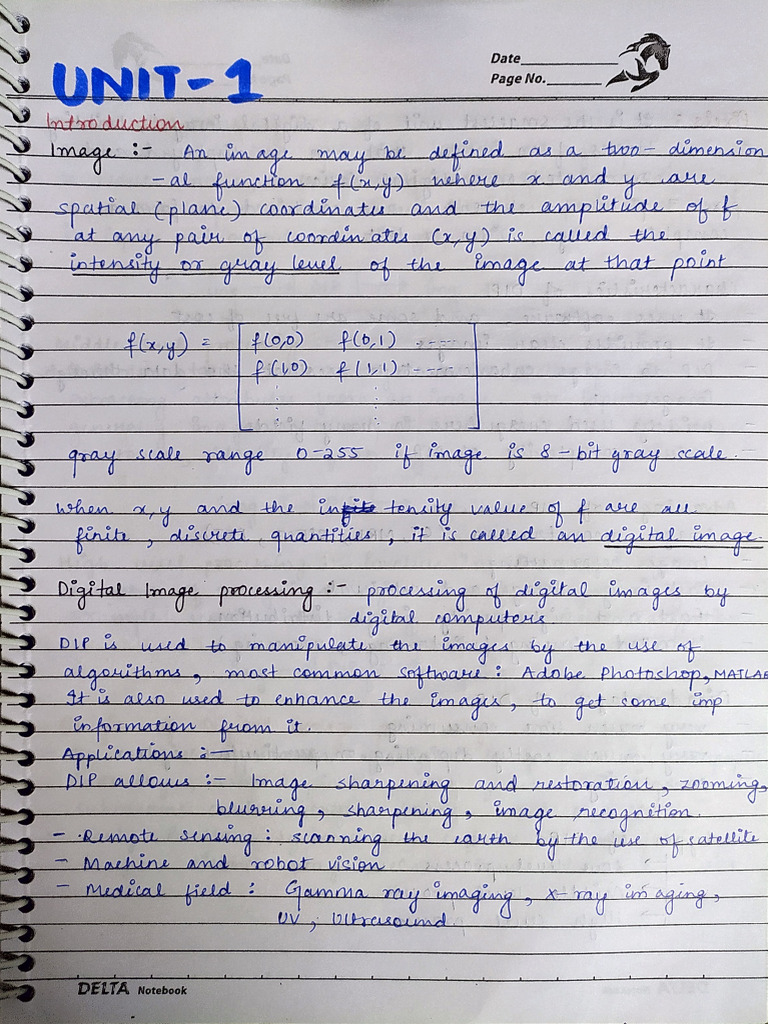 Date
Page No.
UNIT-1
Introduction
Image :- An image may be defined as a two-dimension
-al function f(x,y) where x and y are
spatial (plane) coordinates and the amplitude of f
at any pair of coordinates (x,y) is called the
intensity or gray level of the image at that point
f(x,y) = f(0,0) f(0,1) ----
f(1,0) f(1,1) ----
gray scale range 0-255 if image is 8-bit gray scale.
when x,y and the intensity value of f are all
finite, discrete quantities, it is called an digital image.
Digital Image processing :- processing of digital images by
digital computers.
DIP is used to manipulate the images by the use of
algorithms, most common software : Adobe Photoshop, MATLAB
It is also used to enhance the images, to get some imp
information from it.
Applications :-
DIP allows :- Image sharpening and restoration, zooming,
blurring, sharpening, image recognition.
- Remote sensing : scanning the earth by the use of satellite
- Machine and robot vision
- Medical field : Gamma ray imaging, x-ray imaging,
UV, Ultrasound
DELTA Notebook